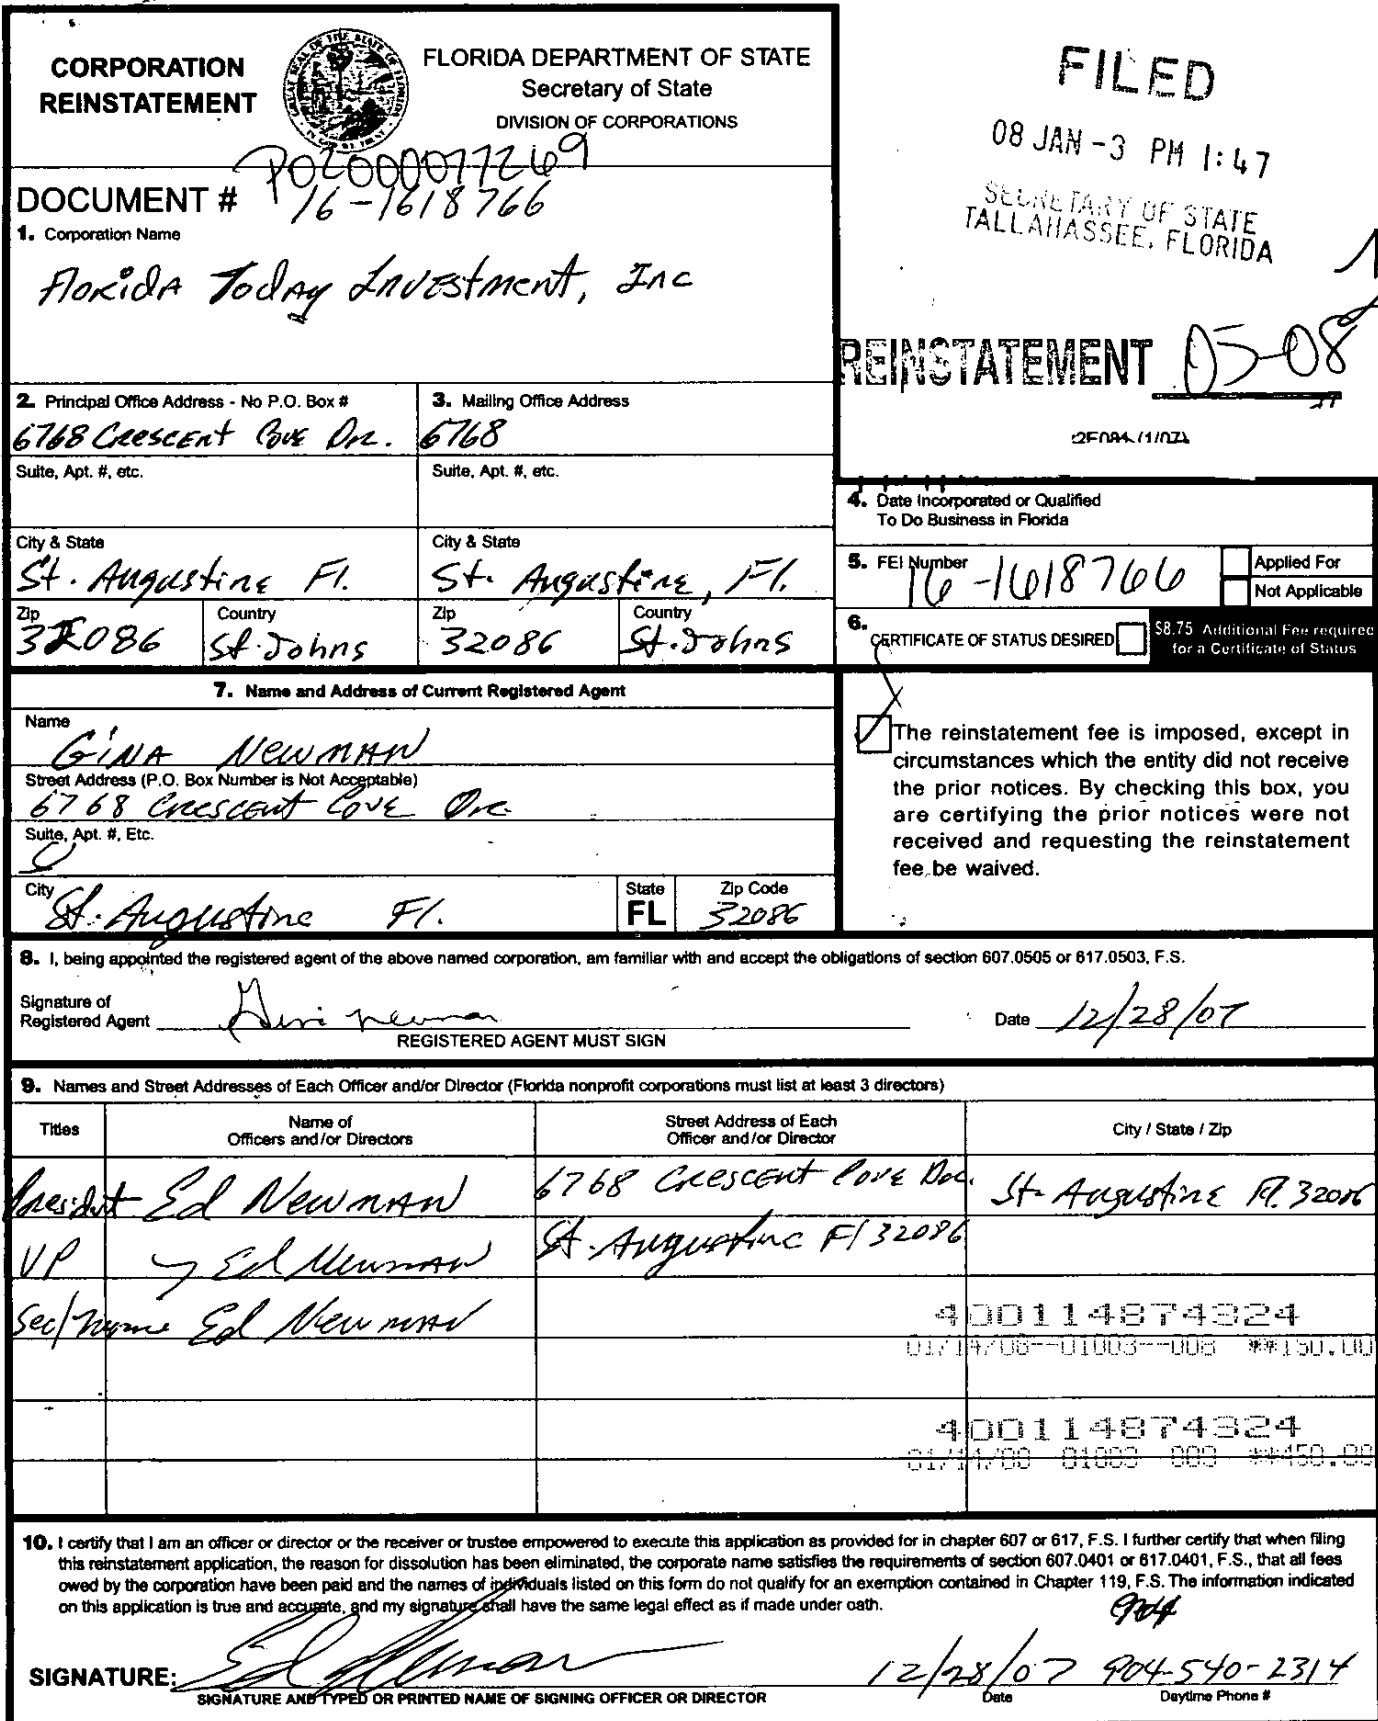 CORPORATION
REINSTATEMENT
FLORIDA DEPARTMENT OF STATE
Secretary of State
DIVISION OF CORPORATIONS
FILED
08 JAN -3 PM 1:47
SECRETARY OF STATE
TALLAHASSEE, FLORIDA
P02000077269
DOCUMENT # 16-1618766
1. Corporation Name
Florida Today Investment, Inc
REINSTATEMENT 05-08
2. Principal Office Address - No P.O. Box #
6768 Crescent Cove Dr.
3. Mailing Office Address
6768
Suite, Apt. #, etc.
Suite, Apt. #, etc.
City & State
St. Augustine Fl.
City & State
St. Augustine, Fl.
Zip
32086
Country
St. Johns
Zip
32086
Country
St. Johns
4. Date Incorporated or Qualified
To Do Business in Florida
5. FEI Number
16-1618766
Applied For
Not Applicable
6. CERTIFICATE OF STATUS DESIRED
$8.75 Additional Fee required
for a Certificate of Status
7. Name and Address of Current Registered Agent
Name
Gina Newman
Street Address (P.O. Box Number is Not Acceptable)
6768 Crescent Cove Dr.
Suite, Apt. #, Etc.
City
St. Augustine Fl.
State
FL
Zip Code
32086
The reinstatement fee is imposed, except in
circumstances which the entity did not receive
the prior notices. By checking this box, you
are certifying the prior notices were not
received and requesting the reinstatement
fee be waived.
8. I, being appointed the registered agent of the above named corporation, am familiar with and accept the obligations of section 607.0505 or 617.0503, F.S.
Signature of
Registered Agent
Date 12/28/07
REGISTERED AGENT MUST SIGN
9. Names and Street Addresses of Each Officer and/or Director (Florida nonprofit corporations must list at least 3 directors)
Titles
Name of
Officers and/or Directors
Street Address of Each
Officer and/or Director
City / State / Zip
President Ed Newman 6768 Crescent Cove Dr. St. Augustine Fl. 32086
VP Ed Newman St. Augustine Fl 32086
Sec/ Ed Newman
400114874324
01/14/08--01003--008 **150.00
400114874324
01/14/08 01003 009 **450.00
10. I certify that I am an officer or director or the receiver or trustee empowered to execute this application as provided for in chapter 607 or 617, F.S. I further certify that when filing
this reinstatement application, the reason for dissolution has been eliminated, the corporate name satisfies the requirements of section 607.0401 or 617.0401, F.S., that all fees
owed by the corporation have been paid and the names of individuals listed on this form do not qualify for an exemption contained in Chapter 119, F.S. The information indicated
on this application is true and accurate, and my signature shall have the same legal effect as if made under oath.
SIGNATURE: Ed Newman 12/28/07 904-540-2314
SIGNATURE AND TYPED OR PRINTED NAME OF SIGNING OFFICER OR DIRECTOR
Date
Daytime Phone #